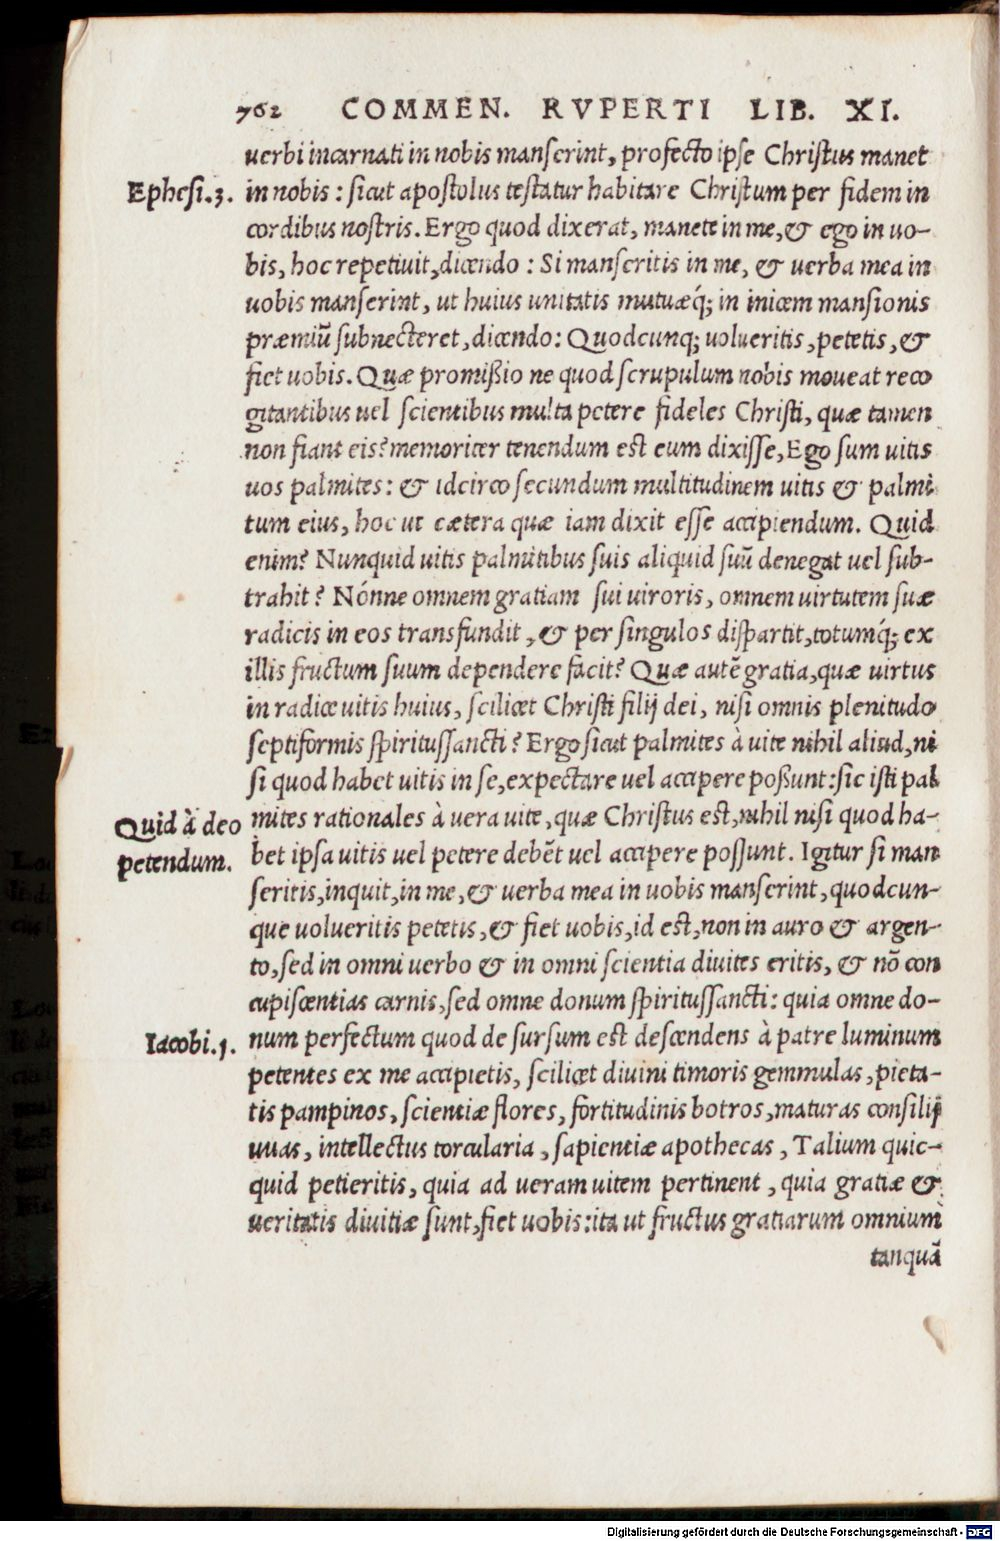 762 COMMEN. RVPERTI LIB. XI.
uerbi incarnati in nobis manserint, profecto ipse Christus manet
Ephesi.3. in nobis : sicut apostolus testatur habitare Christum per fidem in
cordibus nostris. Ergo quod dixerat, manete in me, & ego in uo-
bis, hoc repetivit, dicendo : Si manseritis in me, & uerba mea in
uobis manserint, ut huius unitatis mutuæq́; in inicem mansionis
præmiũ subnecteret, dicendo: Quodcunq; uolueritis, petetis, &
fiet uobis. Quæ promißio ne quod scrupulum nobis moueat reco
gitantibus uel scientibus multa petere fideles Christi, quæ tamen
non fiant eis? memoriter tenendum est eum dixisse, Ego sum uitis
uos palmites: & idcirco secundum multitudinem uitis & palmi
tum eius, hoc ut cætera quæ iam dixit esse accipiendum. Quid
enim? Nunquid uitis palmitibus suis aliquid suũ denegat uel sub-
trahit? Nónne omnem gratiam sui uiroris, omnem uirtutem suæ
radicis in eos transfundit, & per singulos dispartit, totumq́; ex
illis fructum suum dependere facit? Quæ autẽ gratia, quæ uirtus
in radice uitis huius, scilicet Christi filij dei, nisi omnis plenitudo
septiformis spiritussancti? Ergo sicut palmites à uite nihil aliud, ni
si quod habet uitis in se, expectare uel accipere poßunt: sic isti pal
Quid à deo mites rationales à uera uite, quæ Christus est, nihil nisi quod ha-
petendum. bet ipsa uitis uel petere debẽt uel accipere possunt. Igitur si man
seritis, inquit, in me, & uerba mea in uobis manserint, quodcun-
que uolueritis petetis, & fiet uobis, id est, non in auro & argen-
to, sed in omni uerbo & in omni scientia diuites eritis, & nõ con
cupiscentias carnis, sed omne donum spiritussancti: quia omne do-
Iacobi.1. num perfectum quod de sursum est descendens à patre luminum
petentes ex me accipietis, scilicet diuini timoris gemmulas, pieta-
tis pampinos, scientiæ flores, fortitudinis botros, maturas consilij
uuas, intellectus torcularia, sapientiæ apothecas, Talium quic-
quid petieritis, quia ad ueram uitem pertinent, quia gratiæ &
ueritatis diuitiæ sunt, fiet uobis: ita ut fructus gratiarum omnium
tanquã
Digitalisierung gefördert durch die Deutsche Forschungsgemeinschaft - DFG